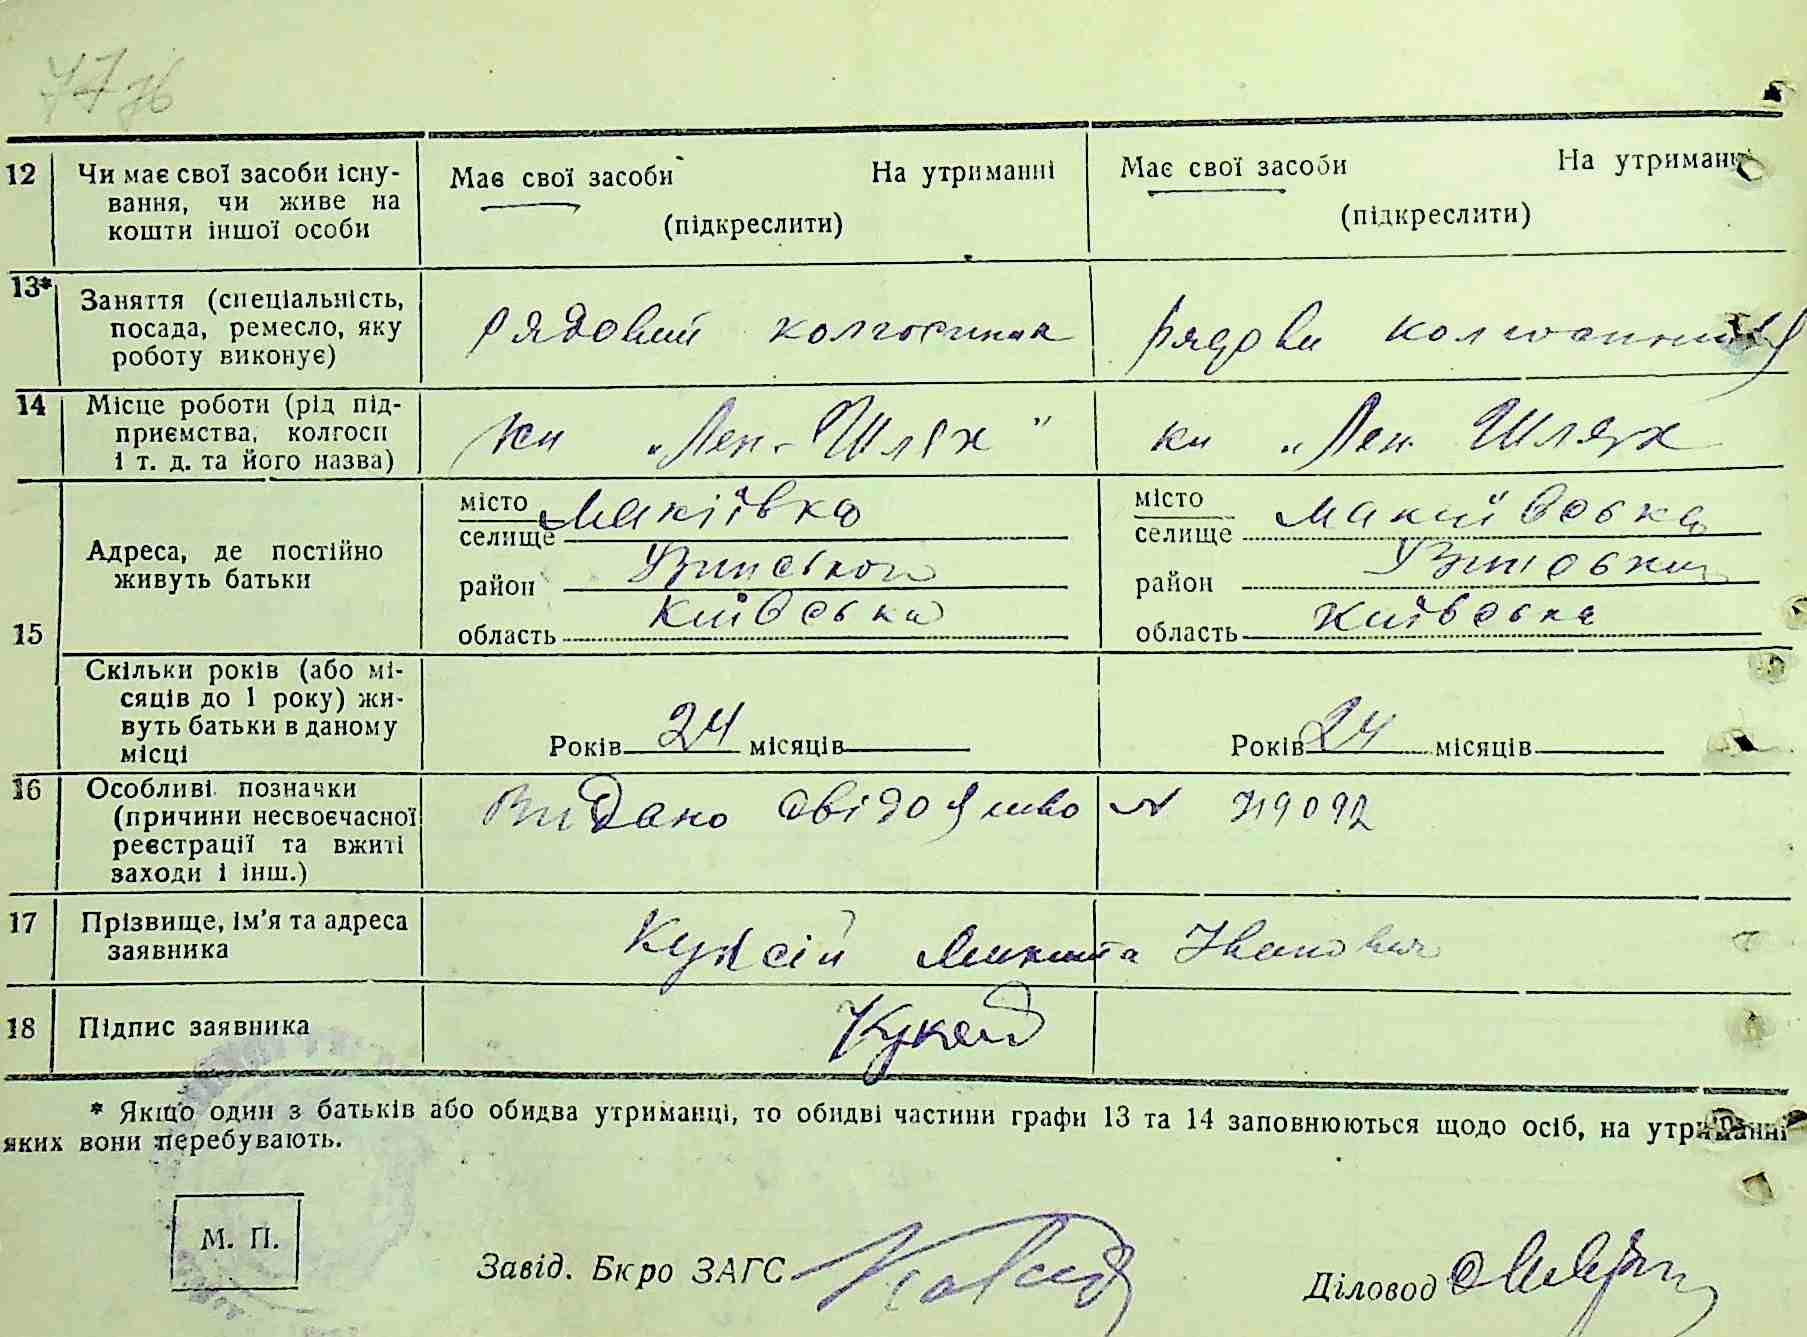 77 зв
12 Чи має свої засоби існу-
вання, чи живе на
кошти іншої особи
Має свої засоби На утриманні
(підкреслити)
Має свої засоби На утриманні
(підкреслити)
13* Заняття (спеціальність,
посада, ремесло, яку
роботу виконує)
Рядовий колгоспник
Рядови колгоспник
14 Місце роботи (рід під-
приємства, колгосп
і т. д. та його назва)
"Лен. Шлях"
"Лен. Шлях
15 Адреса, де постійно
живуть батьки
місто Макіївка
селище
район Узинського
область Київська
місто Макиївська
селище
район Узинський
область Київська
Скільки років (або мі-
сяців до 1 року) жи-
вуть батьки в даному
місці
Років 24 місяців
Років 24 місяців
16 Особливі позначки
(причини несвоєчасної
реєстрації та вжиті
заходи і інш.)
Видано свідоцтво N 719092
17 Прізвище, ім'я та адреса
заявника
Куксій Микита Іванович
18 Підпис заявника
* Якщо один з батьків або обидва утриманці, то обидві частини графи 13 та 14 заповнюються щодо осіб, на утриманні
яких вони перебувають.
М. П.
Завід. Бюро ЗАГС
Діловод